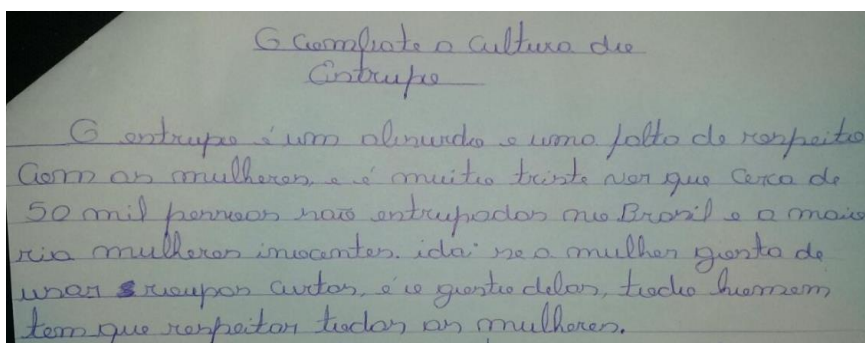 O Combate a Cultura do
Estrupo
O estrupo é um absurdo e uma falta de respeito
Com as mulheres, e é muito triste ver que cerca de
50 mil pessoas são estrupadas no Brasil e a maio
ria mulheres inocentes. idai se a mulher gosta de
usar roupas curtas, é o gosto delas, todo homem
tem que respeitar todas as mulheres.